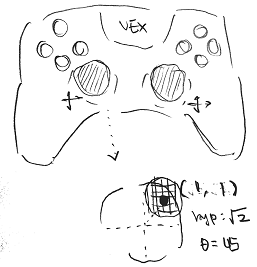 VEX
hyp: √2
θ = 45